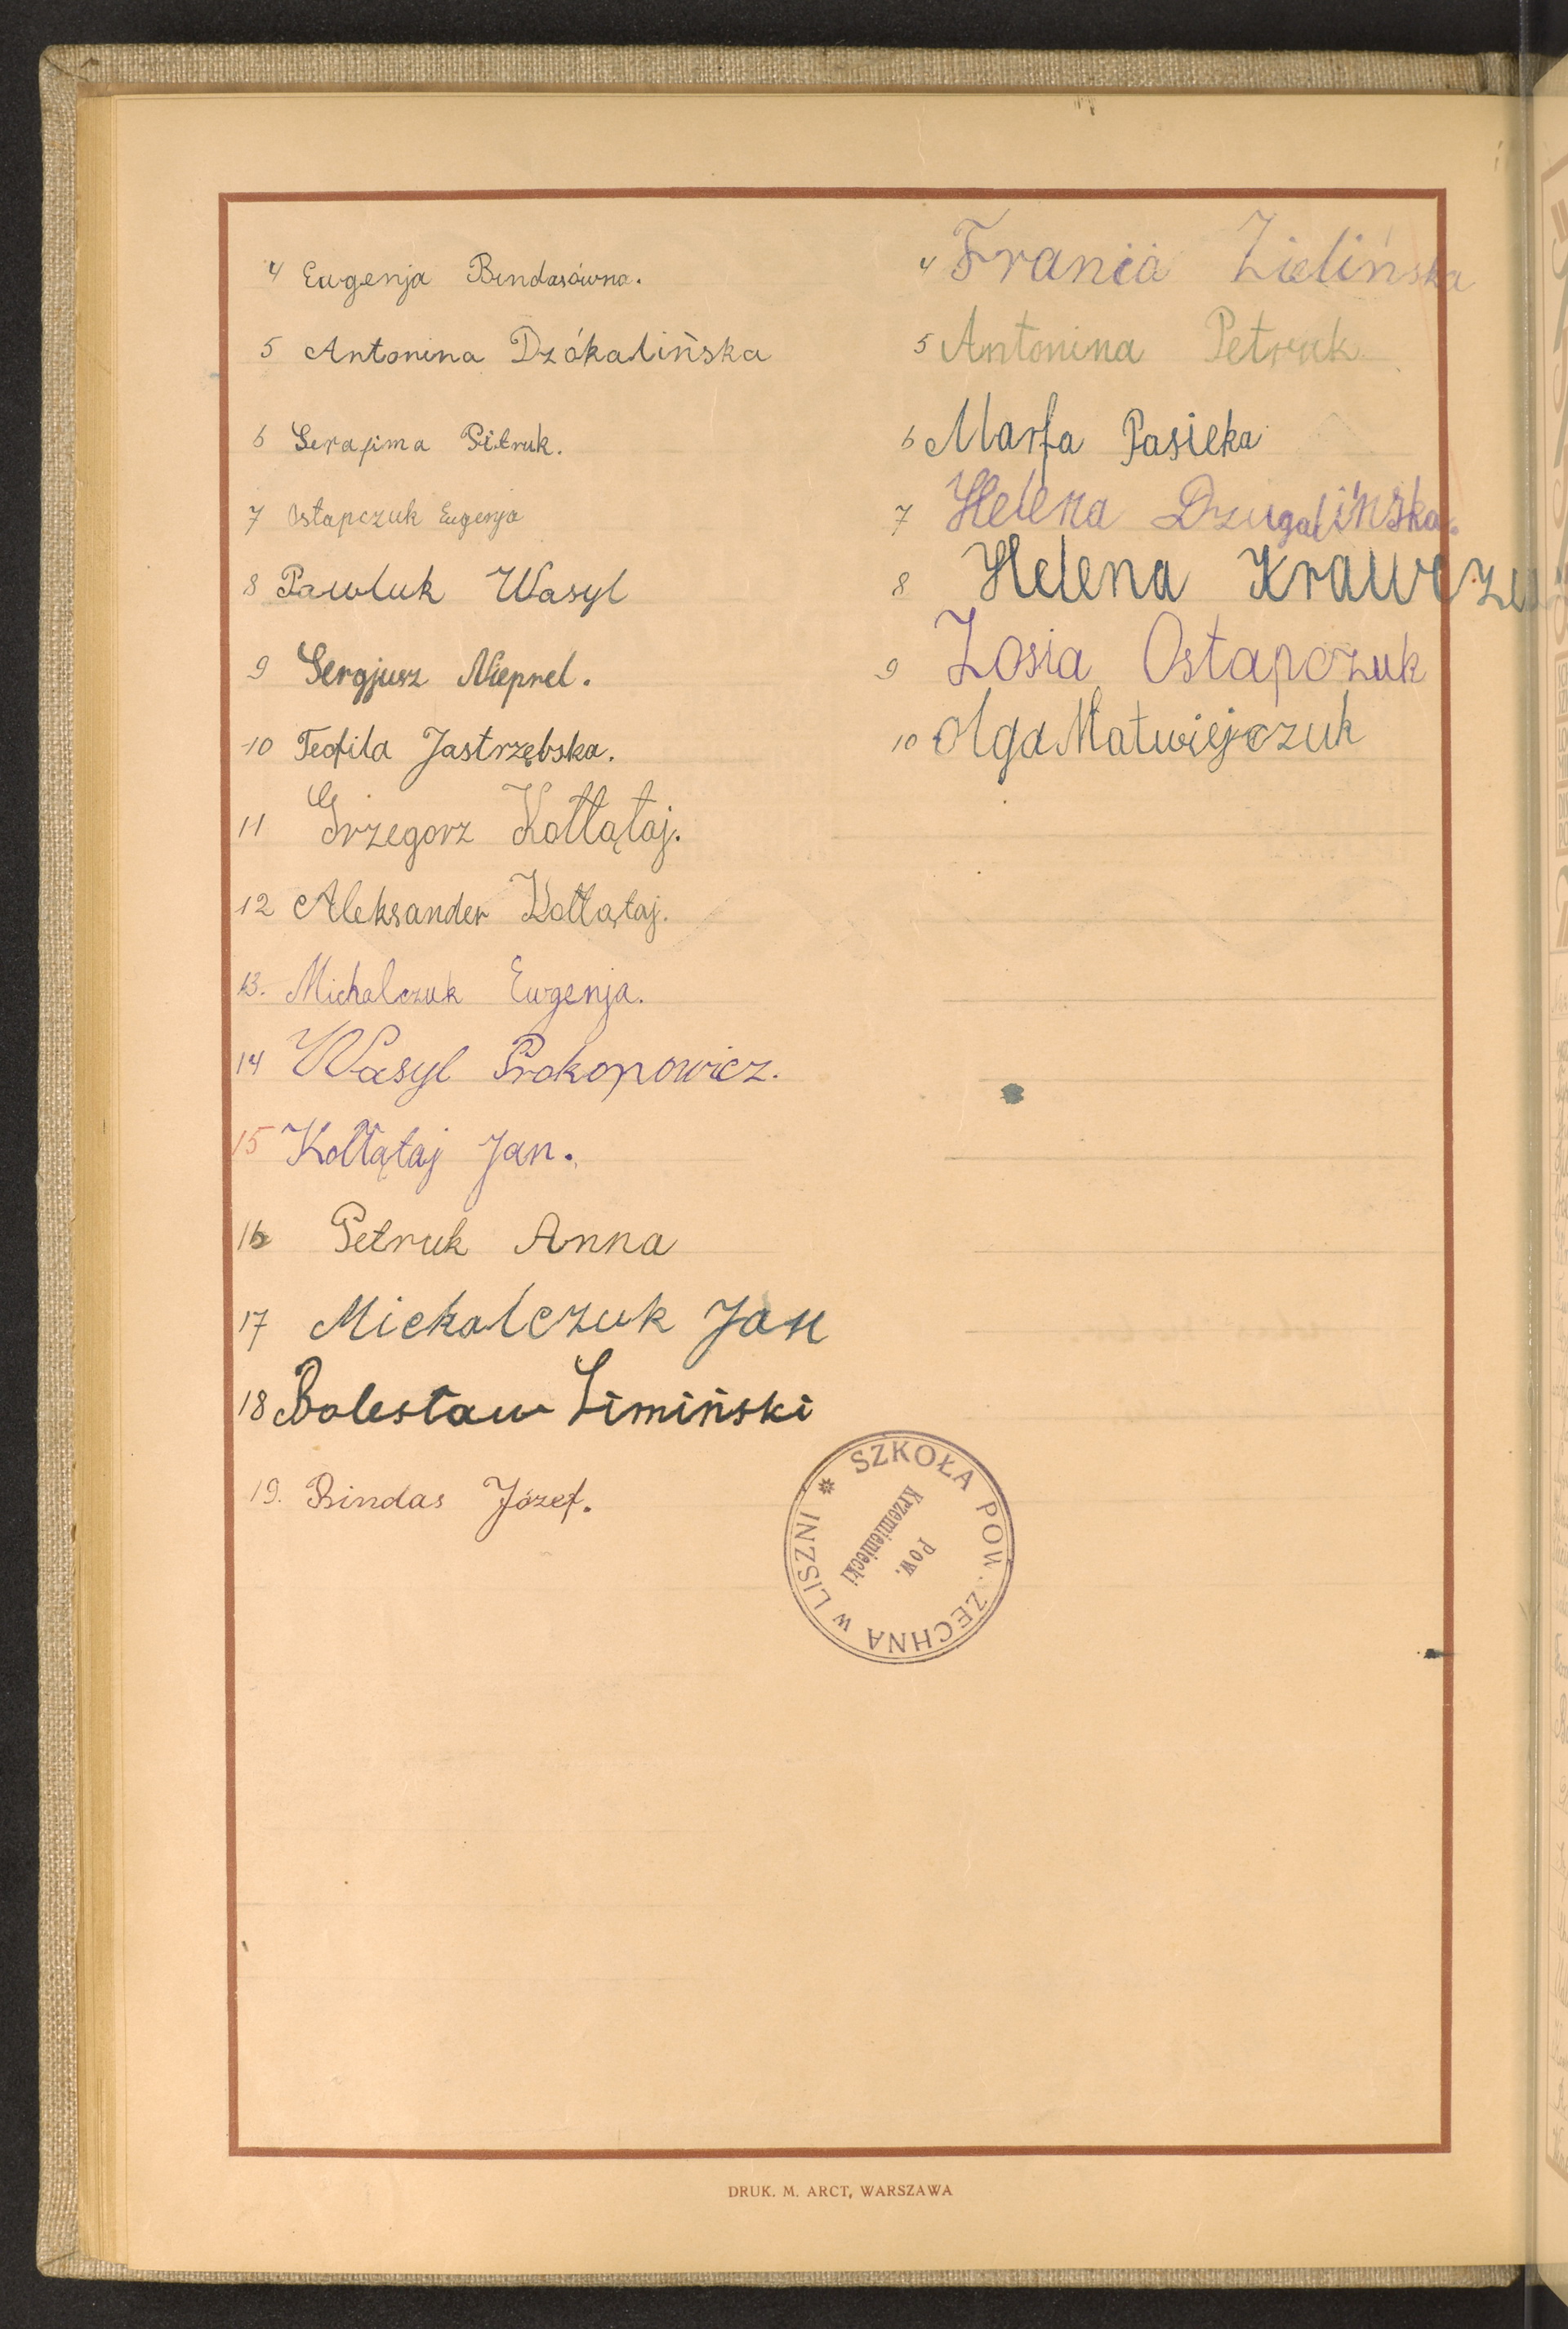 4 Eugenja Bindasówna.
5 Antonina Dzókalińska
6 Serafima Pitruk.
7 Ostapczuk Eugenja
8 Pawluk Wasyl
9 Sergjusz Nieprel.
10 Teofila Jastrzębska.
11 Grzegorz Kołłątaj.
12 Aleksander Kołłątaj.
13. Michalczuk Eugenja.
14 Wasyl Prokopowicz.
15 Kołłątaj Jan.
16 Petruk Anna
17 Michalczuk Jan
18 Bolesław Limiński
19. Bindas Józef.
4 Frania Zielińska
5 Antonina Petruk
6 Marfa Pasieka
7 Helena Dzugalińska.
8 Helena Krawczu
9 Zosia Ostapczuk
10 Olga Matwiejczuk
SZKOŁA POW. ZECHNA w LISZNI
Pow.
Krzemieniecki
DRUK. M. ARCT, WARSZAWA